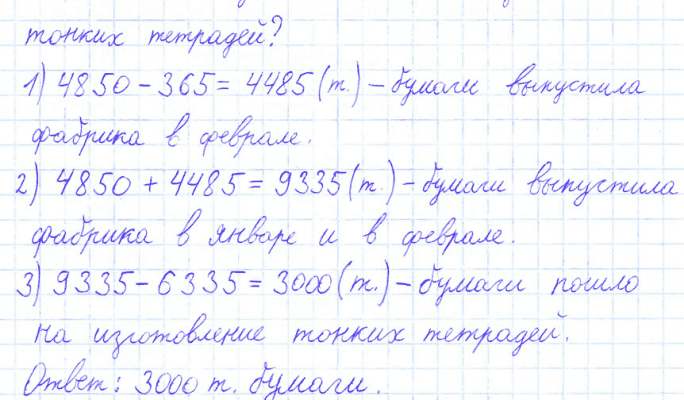 тонких тетрадей?
1) 4850 - 365 = 4485 (т.) - бумаги выпустила
фабрика в феврале.
2) 4850 + 4485 = 9335 (т.) - бумаги выпустила
фабрика в январе и в феврале.
3) 9335 - 6335 = 3000 (т.) - бумаги пошло
на изготовление тонких тетрадей.
Ответ: 3000 т. бумаги.